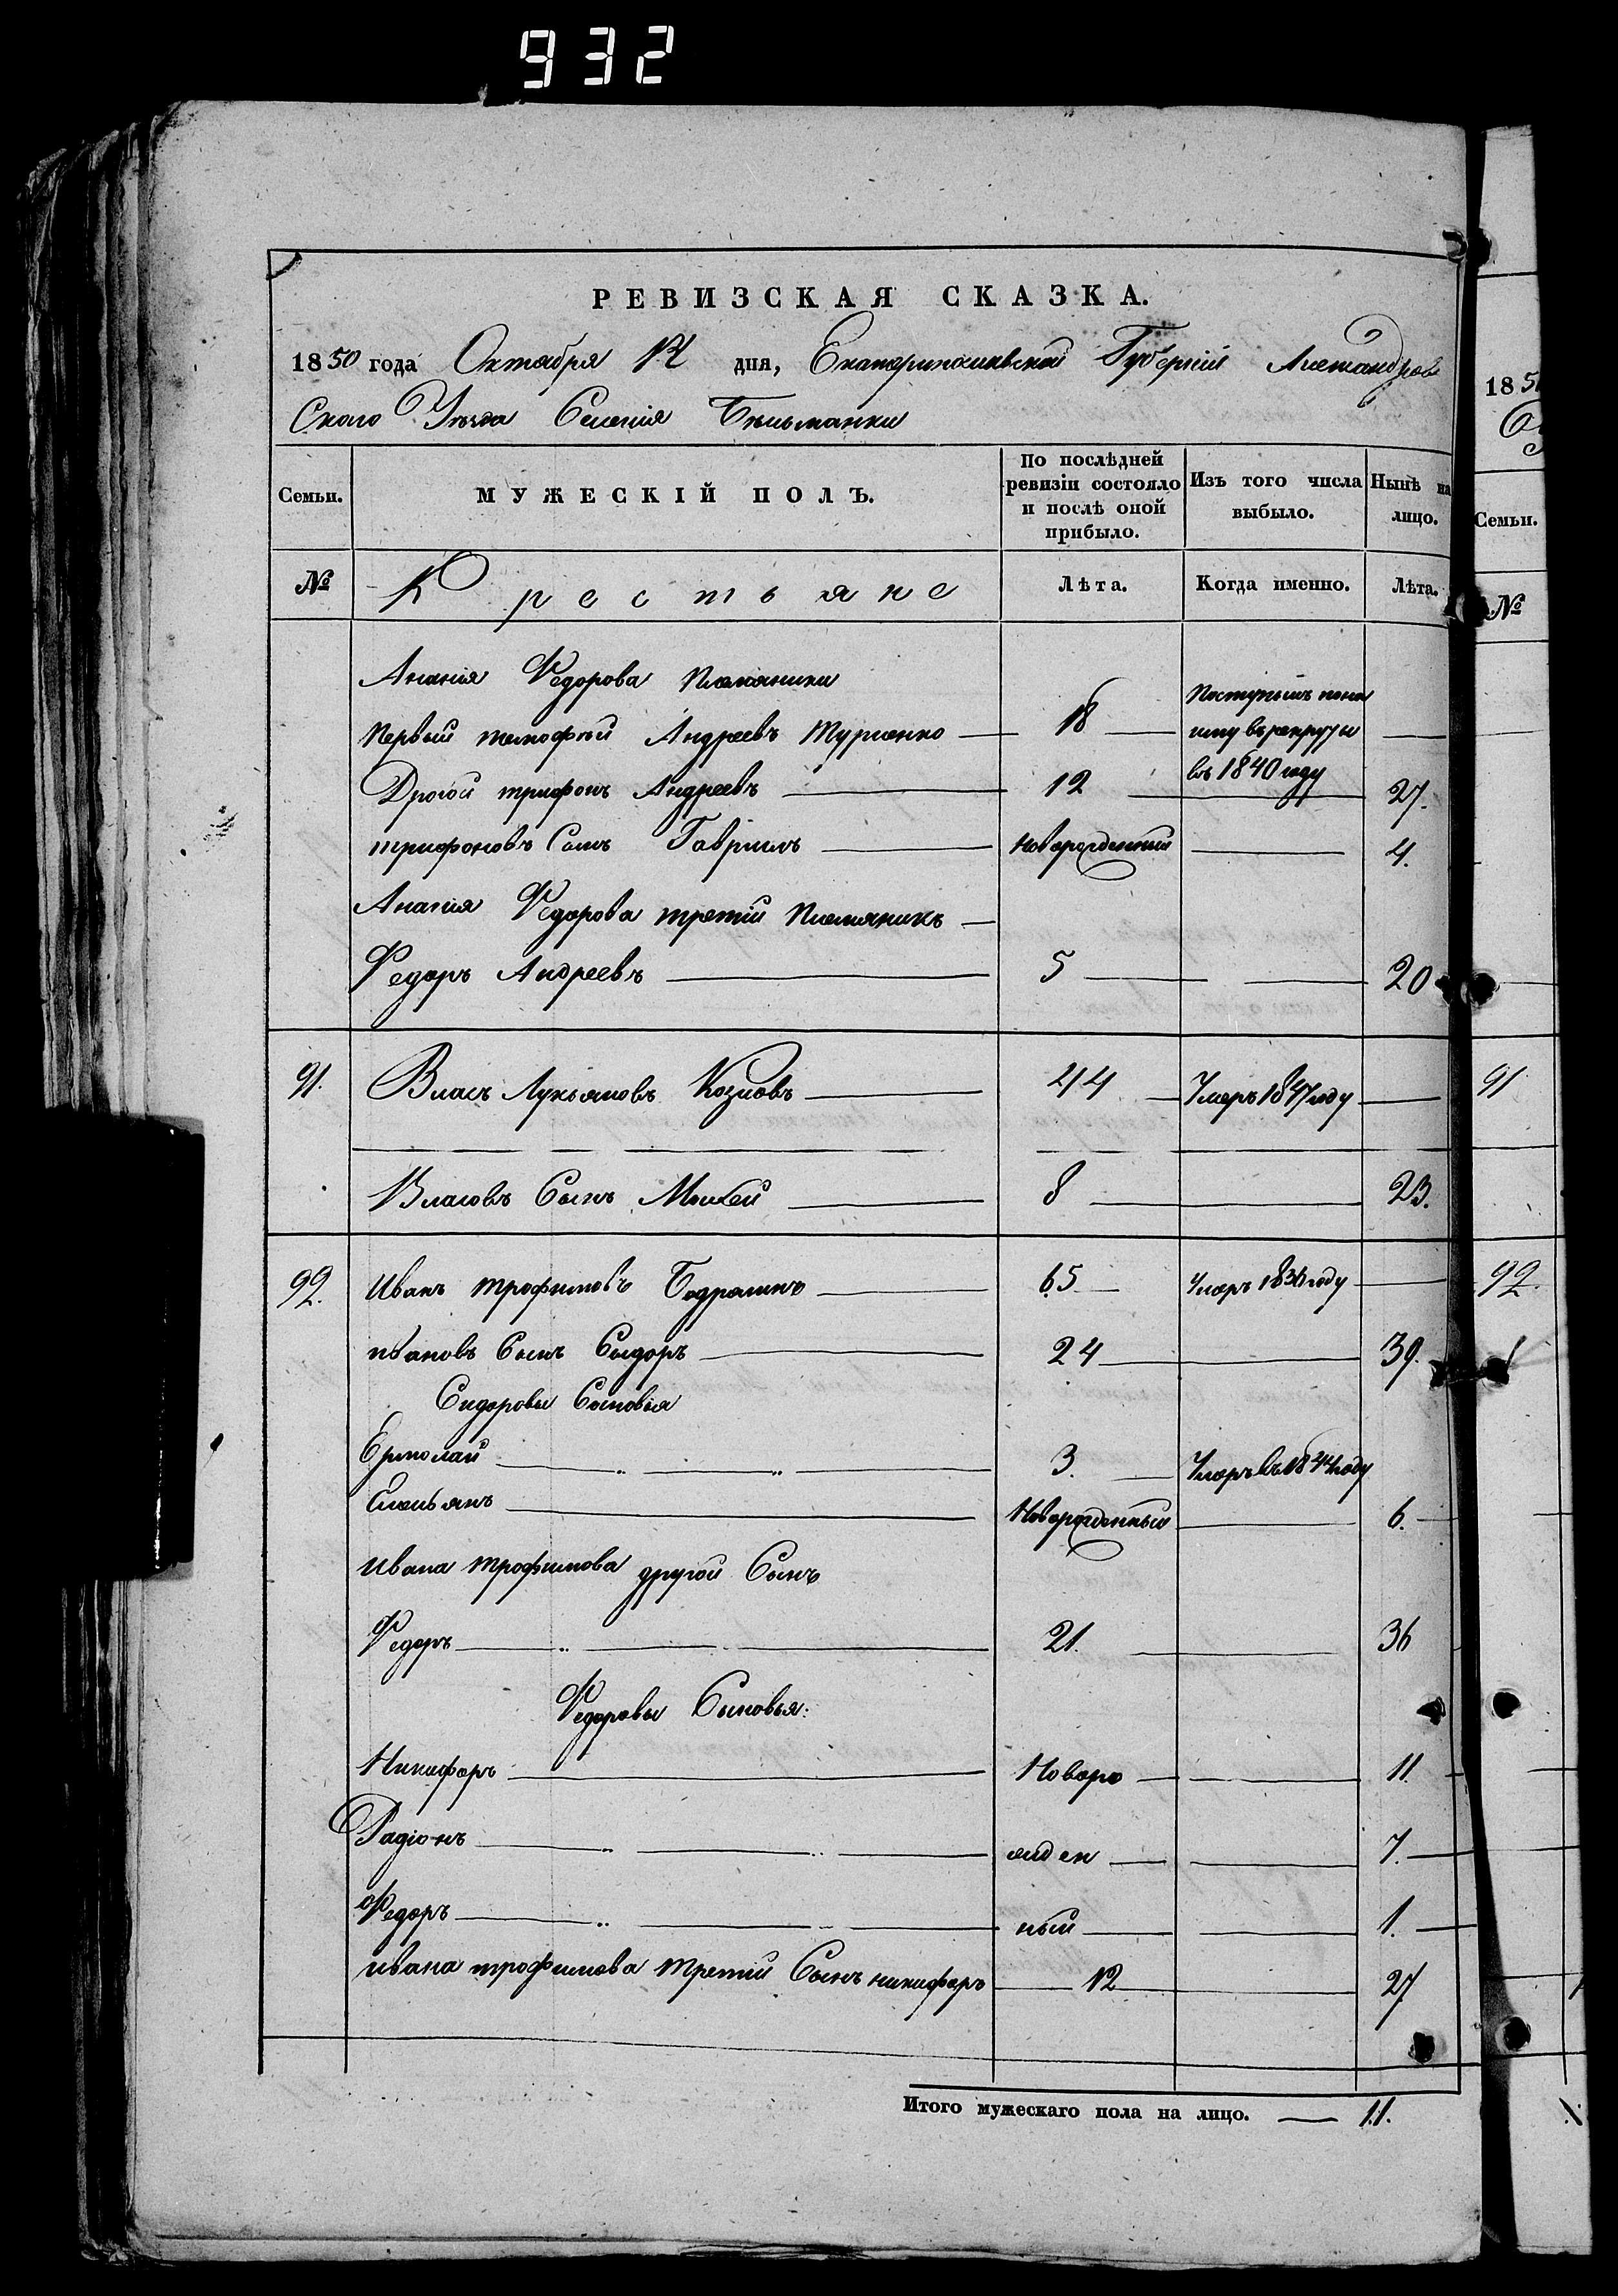 932
РЕВИЗСКАЯ СКАЗКА.
1850 года Октября дня, Екатеринославской Губерніи Александров
Скаго Уезда Селенія Бельманки
Семьи. МУЖЕСКІЙ ПОЛЪ. По послѣдней ревизіи состояло и послѣ оной прибыло. Изъ того числа выбыло. Нынѣ на лицо.
№ Крестьяне Лѣта. Когда именно. Лѣта.
Анания Федорова племяники
первый тимофей Андреевъ 18 Поступилъ в рекруты
Другой трифонъ Андреевъ 12 въ 1840 году 27.
трифоновъ Сынъ Гаврилъ новорожденный 4.
Анания Федорова третій племяникъ
Федоръ Андреевъ 5 20
91. Власъ Лукьяновъ Козловъ 44 Умеръ 1847 году
Власовъ Сынъ Мокей 8 23.
92. Иванъ трофимовъ 65 Умеръ 1836 году
ивановъ Сынъ Сыдоръ 24 39.
Сидоровы Сыновья
Ермолай 3. Умеръ въ 1844 году
Емельянъ Новорожденный 6.
Ивана трофимова другой Сынъ
Федоръ 21. 36
Федоровы Сыновья:
Никифоръ Новоро 11.
Радіонъ жден 7.
Федоръ ный 1.
ивана трофимова третій Сынъ никифоръ 12 27
Итого мужескаго пола на лицо. 11.
185
Семьи.
№
91
92